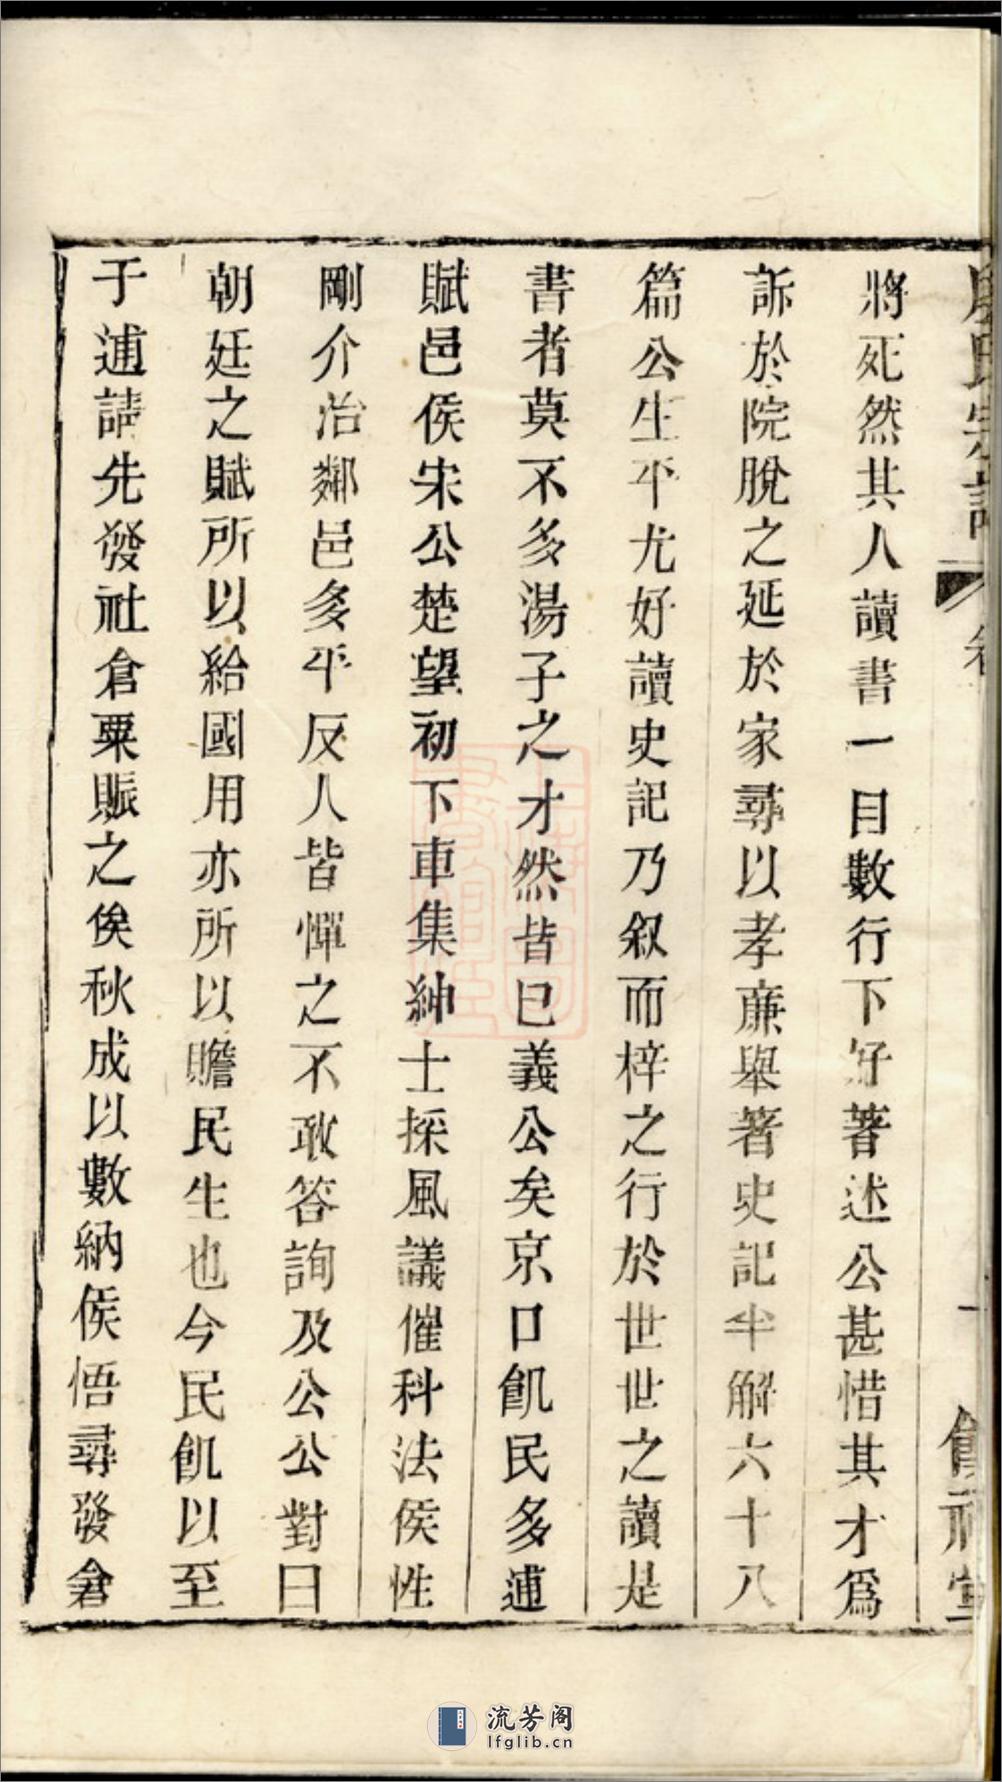 將死然其人讀書一目數行下好著述公甚惜其才爲
訴於院脫之延於家尋以孝廉舉著史記半解六十八
篇公生平尤好讀史記乃叙而梓之行於世世之讀是
書者莫不多湯子之才然皆曰義公矣京口飢民多逋
賦邑侯宋公楚望初下車集紳士採風議催科法侯性
剛介治鄰邑多平反人皆憚之不敢答詢及公公對曰
朝廷之賦所以給國用亦所以贍民生也今民飢以至
于逋請先發社倉粟賑之俟秋成以數納侯悟尋發倉
流芳阁
lfglib.cn